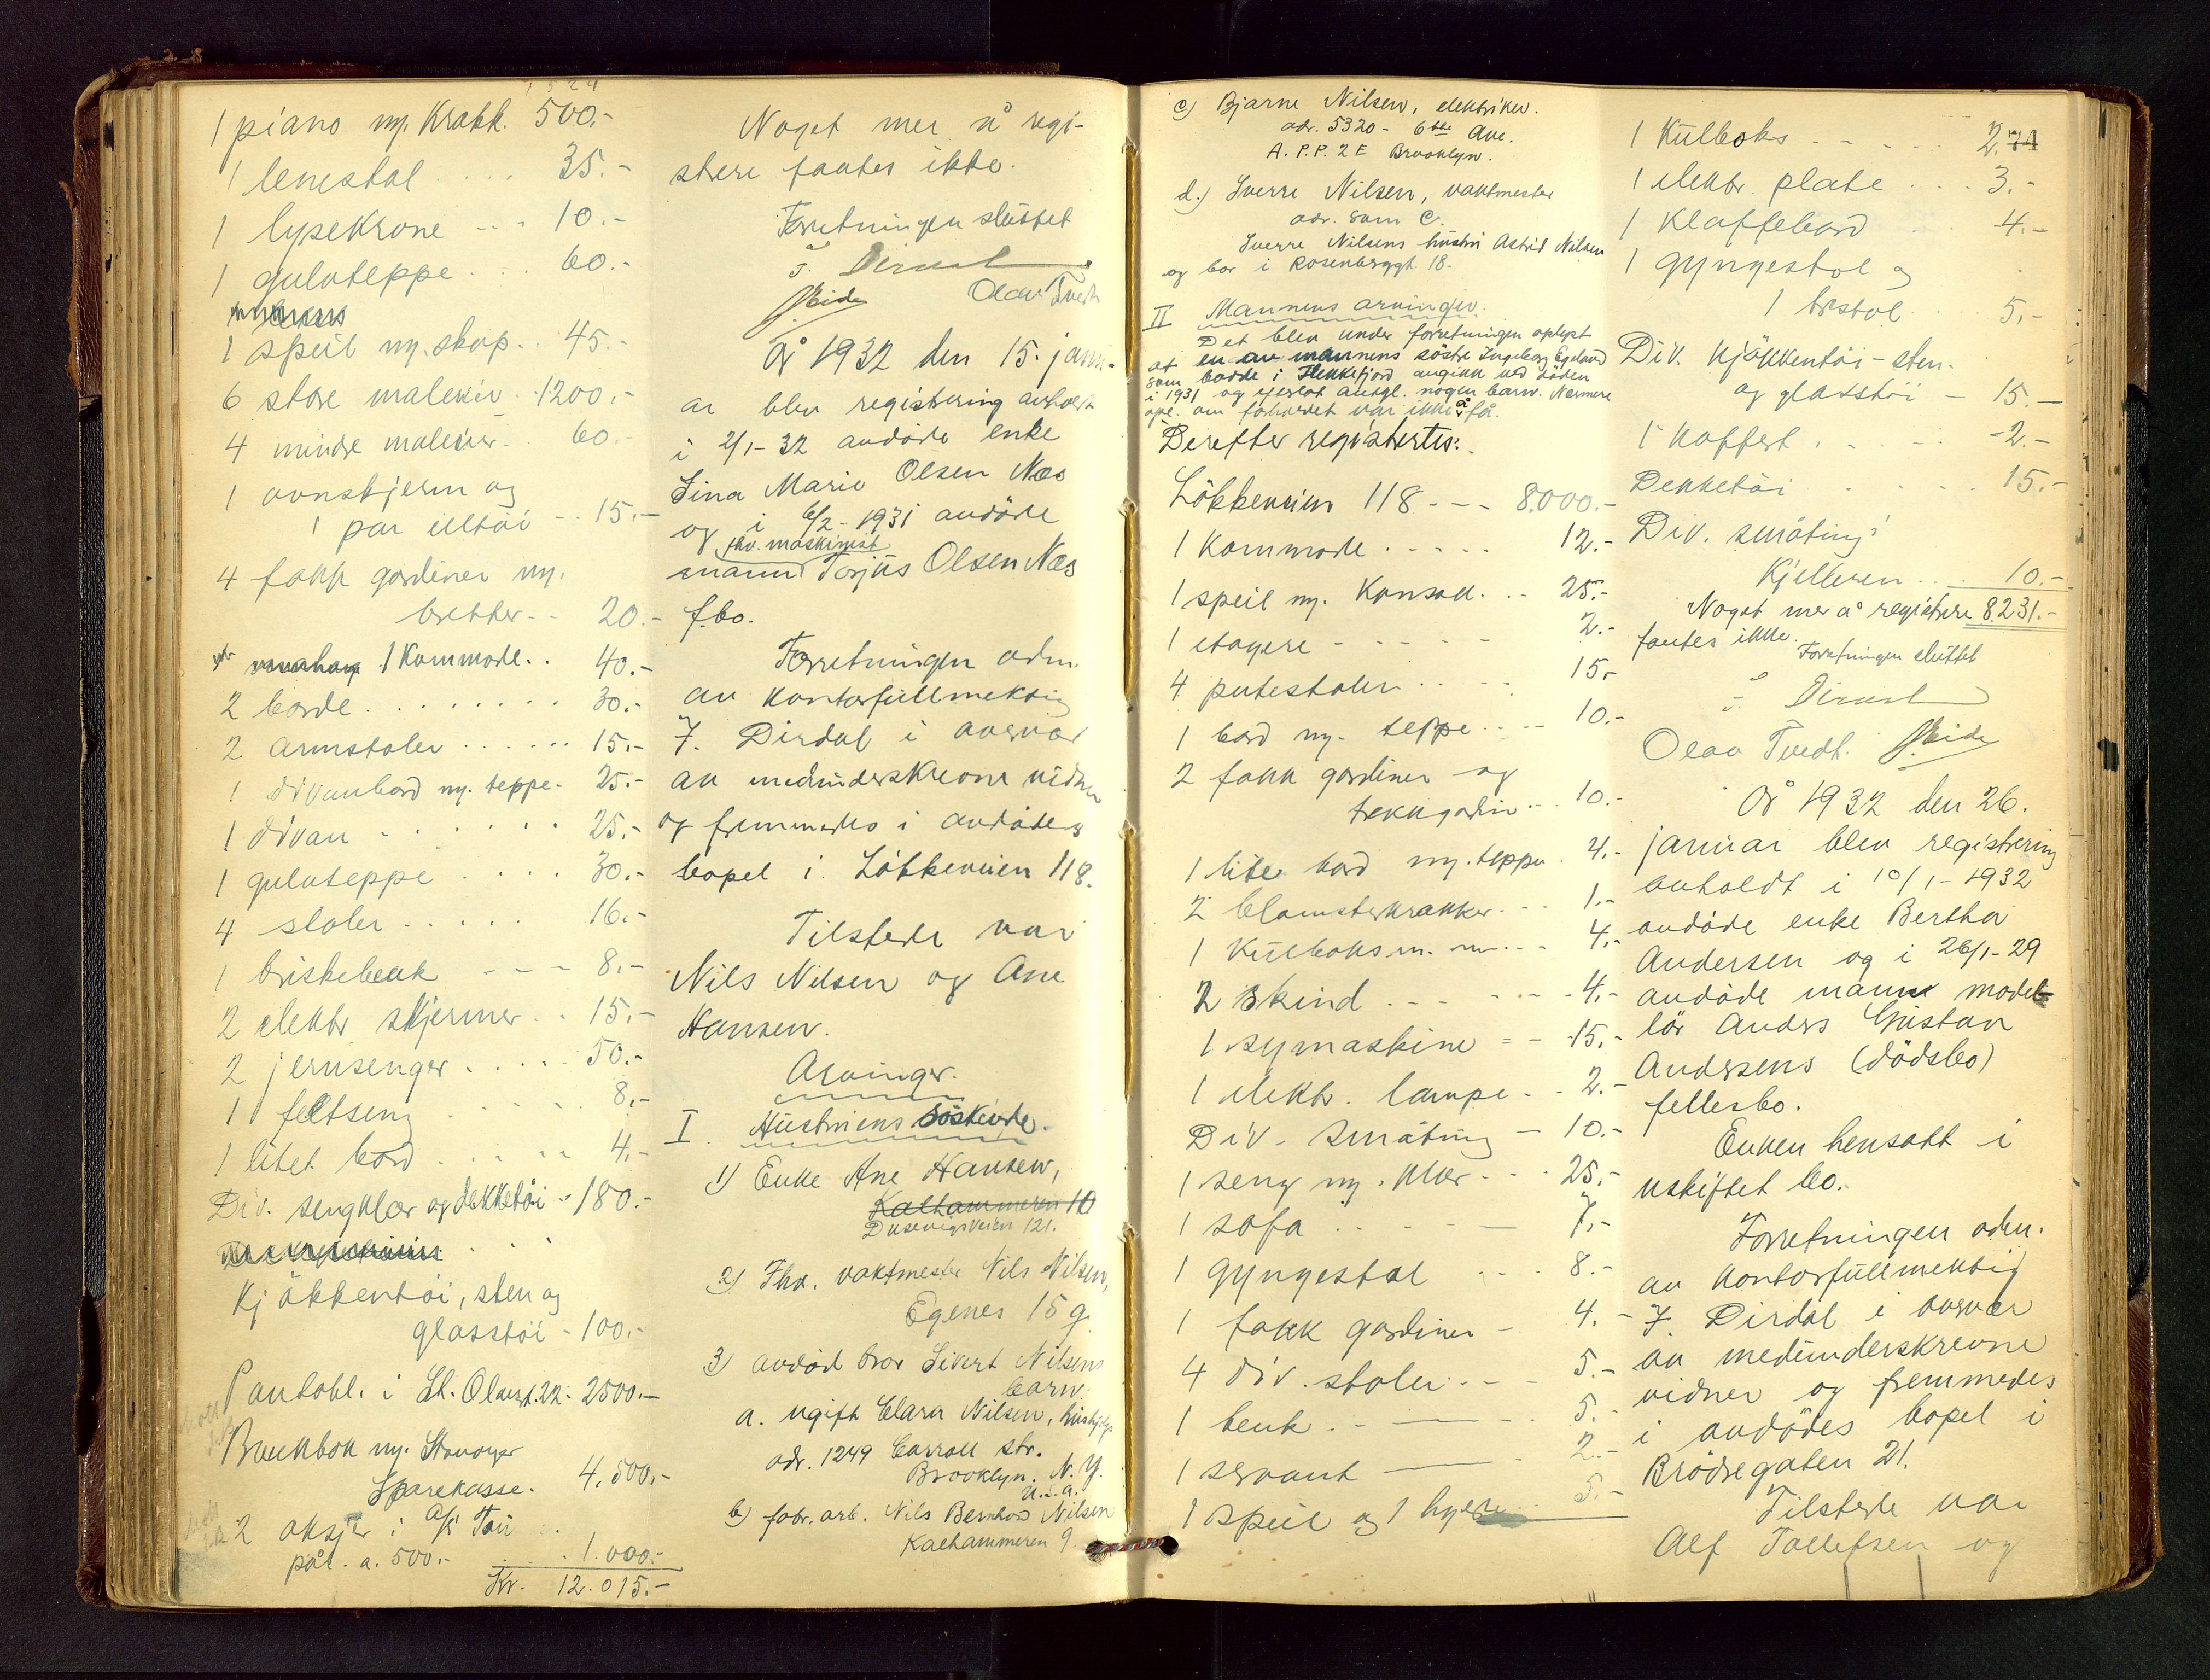 1 piano m. Krakk. 500.-
1 lenestol .... 35.-
1 lysekrone ... 10.-
1 gulvteppe ... 60.-
1 speil m. skap .. 45.-
6 store malerier . 1200.-
4 mindre malerier . 60.-
1 ovnskjerm og
1 par iltöi .. 15.-
4 fakk gardiner m.
bretter .. 20.-
1 Kommode .. 40.-
2 borde ........ 30.-
2 armstoler ...... 15.-
1 divanbord m. teppe - 25.-
1 divan ...... 25.-
1 gulvteppe .... 30.-
4 stoler ..... 16.-
1 briskebenk - - - 8.-
2 elektr skjermer .. 15.-
2 jernsenger .... 50.-
1 feltseng ..... 8.-
1 litet bord ..... 4.-
Div. sengklær og dekketöi .. 180.-
Kjökkentöi, sten og
glasstöi - 100.-
Pantobl. i St. Olavsgt. 22 - 2500.-
Bankbok m. Stavanger
Sparekasse. 4.500.-
2 aksjer i A/S Tou
pål. a. 500.- ... 1.000.-
Kr. 12.015.-
Noget mer å regi-
strere fantes ikke.
Forretningen sluttet
F. Dirdal
Olav Tvedt
År 1932 den 15. janu-
ar blev registrering avholdt
i 2/1-32 avdöde enke
Sina Marie Olsen Næs
og i 6/2-1931 avdöde
fhv. maskinist
mann Torjus Olsen Næs
f.bo.
Forretningen adm.
av kontorfullmektig
F. Dirdal i overvær
av medunderskrevne vidner
og fremmedes i avdödes
bopel i Lökkeveien 118.
Tilstede var
Nils Nilsen og Ane
Hansen.
Arvinger.
I. Hustruens söskende.
1) Enke Ane Hansen,
Kalhammeren 10
Dusevigsveien 121.
2) Fhv. vaktmester Nils Nilsen,
Egenes 15 g.
3) avdöd bror Sivert Nilsens
barn.
a. ugift Clara Nilsen, hushjelp
adr. 1249 Carroll str.
Brooklyn. N. Y.
U.S.A.
b) fabr. arb. Nils Bernhard Nilsen
Kalhammeren 9.
c) Bjarne Nilsen, elektriker.
adr. 5320 - 6the Ave.
A. P. P. 2 E Brooklyn.
d.) Sverre Nilsen, vaktmester
adr. som c.
Sverre Nilsens hustru Astrid Nilsen
og bor i Rosenberggt. 18.
II Mannens arvinger.
Det blev under forretningen oplyst
at en av mannens söstre Ingeborg Egeland
som bodde i Flekkefjord avgikk ved döden
i 1931 og efterlot antgl. nogen barn. Nærmere
opl. om forholdet var ikke å få.
Derefter registrertes:
Lökkeveien 118 - - - 8.000.-
1 Kommode ..... 12.-
1 speil m. Konsoll ... 25.-
1 etagere - - - - - 2.-
4 putestoler ..... 15.-
1 bord m. teppe .... 10.-
2 fakk gardiner og
trekkgardin ... 10.-
1 lite bord m. teppe . 4.-
2 blomsterkrakker ... 1.-
1 Kulboks m. m. ... 4.-
2 skind ...... 4.-
1 symaskine - - 15.-
1 elektr. lampe .. 2.-
Div. småting - 10.-
1 seng m. klær ... 25.-
1 sofa ..... 7.-
1 gyngestol ... 8.-
1 fakk gardiner - 4.-
4 div. stoler ... 5.-
1 benk . - - 5.-
1 servant - . 2.-
1 speil og 1 hylle .. 5.-
1 Kulboks ...... 2.-
74
1 elektr. plate ... 3.-
1 Klaffebord ... 4.-
1 gyngestol og
1 trestol . 5.-
Div. kjökkentöi - sten-
og glasstöi - 15.-
1 koffert ..... - 2.-
Dekketöi ..... 15.-
Div. småting i
Kjelleren ... 10.-
Noget mer å registrere 8231.-
fantes ikke.
Forretningen sluttet
F. Dirdal
Olav Tvedt.
År 1932 den 26.
januar blev registrering
avholdt i 10/1-1932
avdöde enke Bertha
Andersen og i 26/1-29
avdöde mann model-
lör Anders Gustav
Andersens (dödsbo)
fellesbo.
Enken hensatt i
uskiftet bo.
Forretningen adm.
av kontorfullmektig
F. Dirdal i overvær
av medunderskrevne
vidner og fremmedes
i avdödes bopel i
Brödregaten 21.
Tilstede var
Alf Tollefsen og